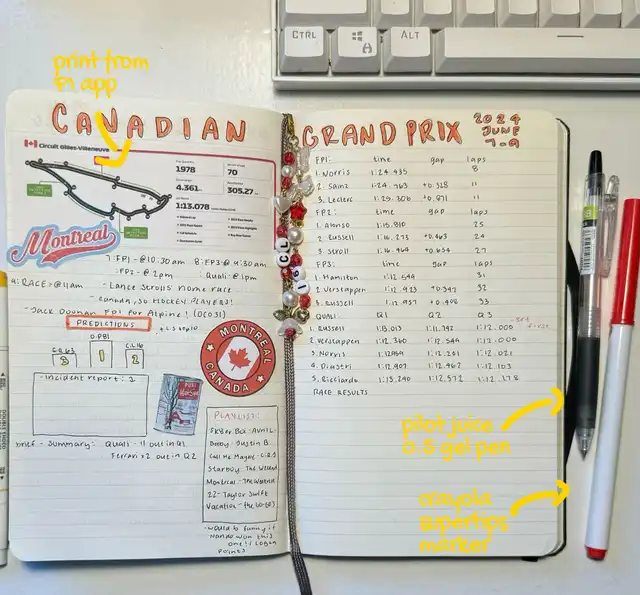 print from
F1 app
CTRL
ALT
CANADIAN
Circuit Gilles-Villeneuve
1978
70
4.361
305.27
1:13.078
Montreal
7: FP1 - @ 10:30 am 8: FP3 @ 9:30 am
FP2 - @ 2pm Quali: @ 1pm
9: RACE @ 11am - Lance Strolls home race
- canada, so HOCKEY PLAYERS!
- Jack Doohan FP1 for Alpine! (OCO31)
PREDICTIONS
O.P81
C.L16
3 1 2
- Incident report: 2
MONTREAL
CANADA
brief - summary: Quali - 11 out in Q1
Ferrari x2 out in Q2
PLAYLIST:
Sk8er Boi - Avril L.
Bobby - Justin B.
Call Me Maybe - C.R.J
Starboy - The Weeknd
Montreal - The Weeknd
22 - Taylor Swift
Vacation - the Go-Go's
- would be funny if
Nando won this
one! / Logan
points
C L
16
GRAND PRIX
2024
JUNE
7-9
FP1: time gap laps
1. Norris 1:24.435 8
2. Sainz 1:24.763 +0.328 11
3. Leclerc 1:25.306 +0.871 11
FP2: time gap laps
1. Alonso 1:15.810 25
2. Russell 1:16.273 +0.463 24
3. Stroll 1:16.464 +0.654 27
FP3: time gap laps
1. Hamilton 1:12.549 31
2. Verstappen 1:12.923 +0.347 32
3. Russell 1:12.957 +0.408 33
QUALI: Q1 Q2 Q3
1. Russell 1:13.013 1:11.742 1:12.000 - set first
2. Verstappen 1:12.360 1:12.549 1:12.000
3. Norris 1:12.959 1:12.201 1:12.021
4. Piastri 1:12.907 1:12.462 1:12.103
5. Ricciardo 1:13.240 1:12.572 1:12.178
RACE RESULTS
pilot juice
0.5 gel pen
crayola
supertips
marker